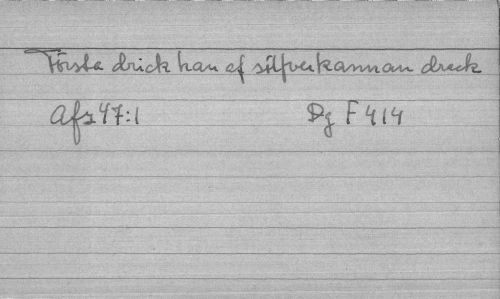 Första drick han af silfverkannan drack
Afs 47:1 Dg F 414